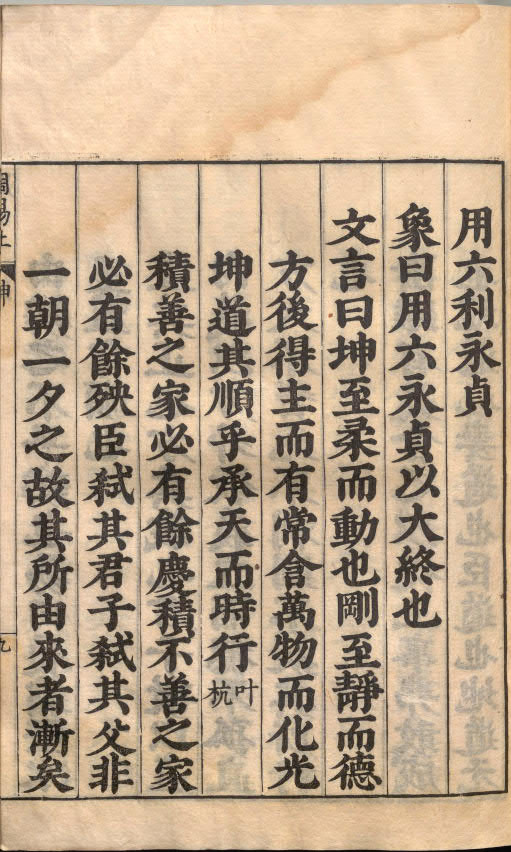 用六利永貞
象曰用六永貞以大終也
文言曰坤至柔而動也剛至靜而德
方後得主而有常含萬物而化光
坤道其順乎承天而時行叶杭
積善之家必有餘慶積不善之家
必有餘殃臣弑其君子弑其父非
一朝一夕之故其所由來者漸矣
周易上 坤 九